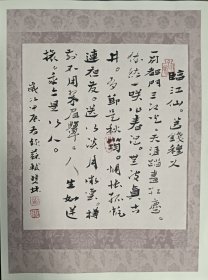 臨江仙。送錢穆父
一別都門三改火。天涯踏盡紅塵。
依然一咲作春温。無波真古
井。有節是秋筠。惆悵孤帆
連夜發。送行淡月微雲。樽
前不用翠眉顰。人生如逆
旅。我亦是行人。
歲次甲辰春 蘇軾